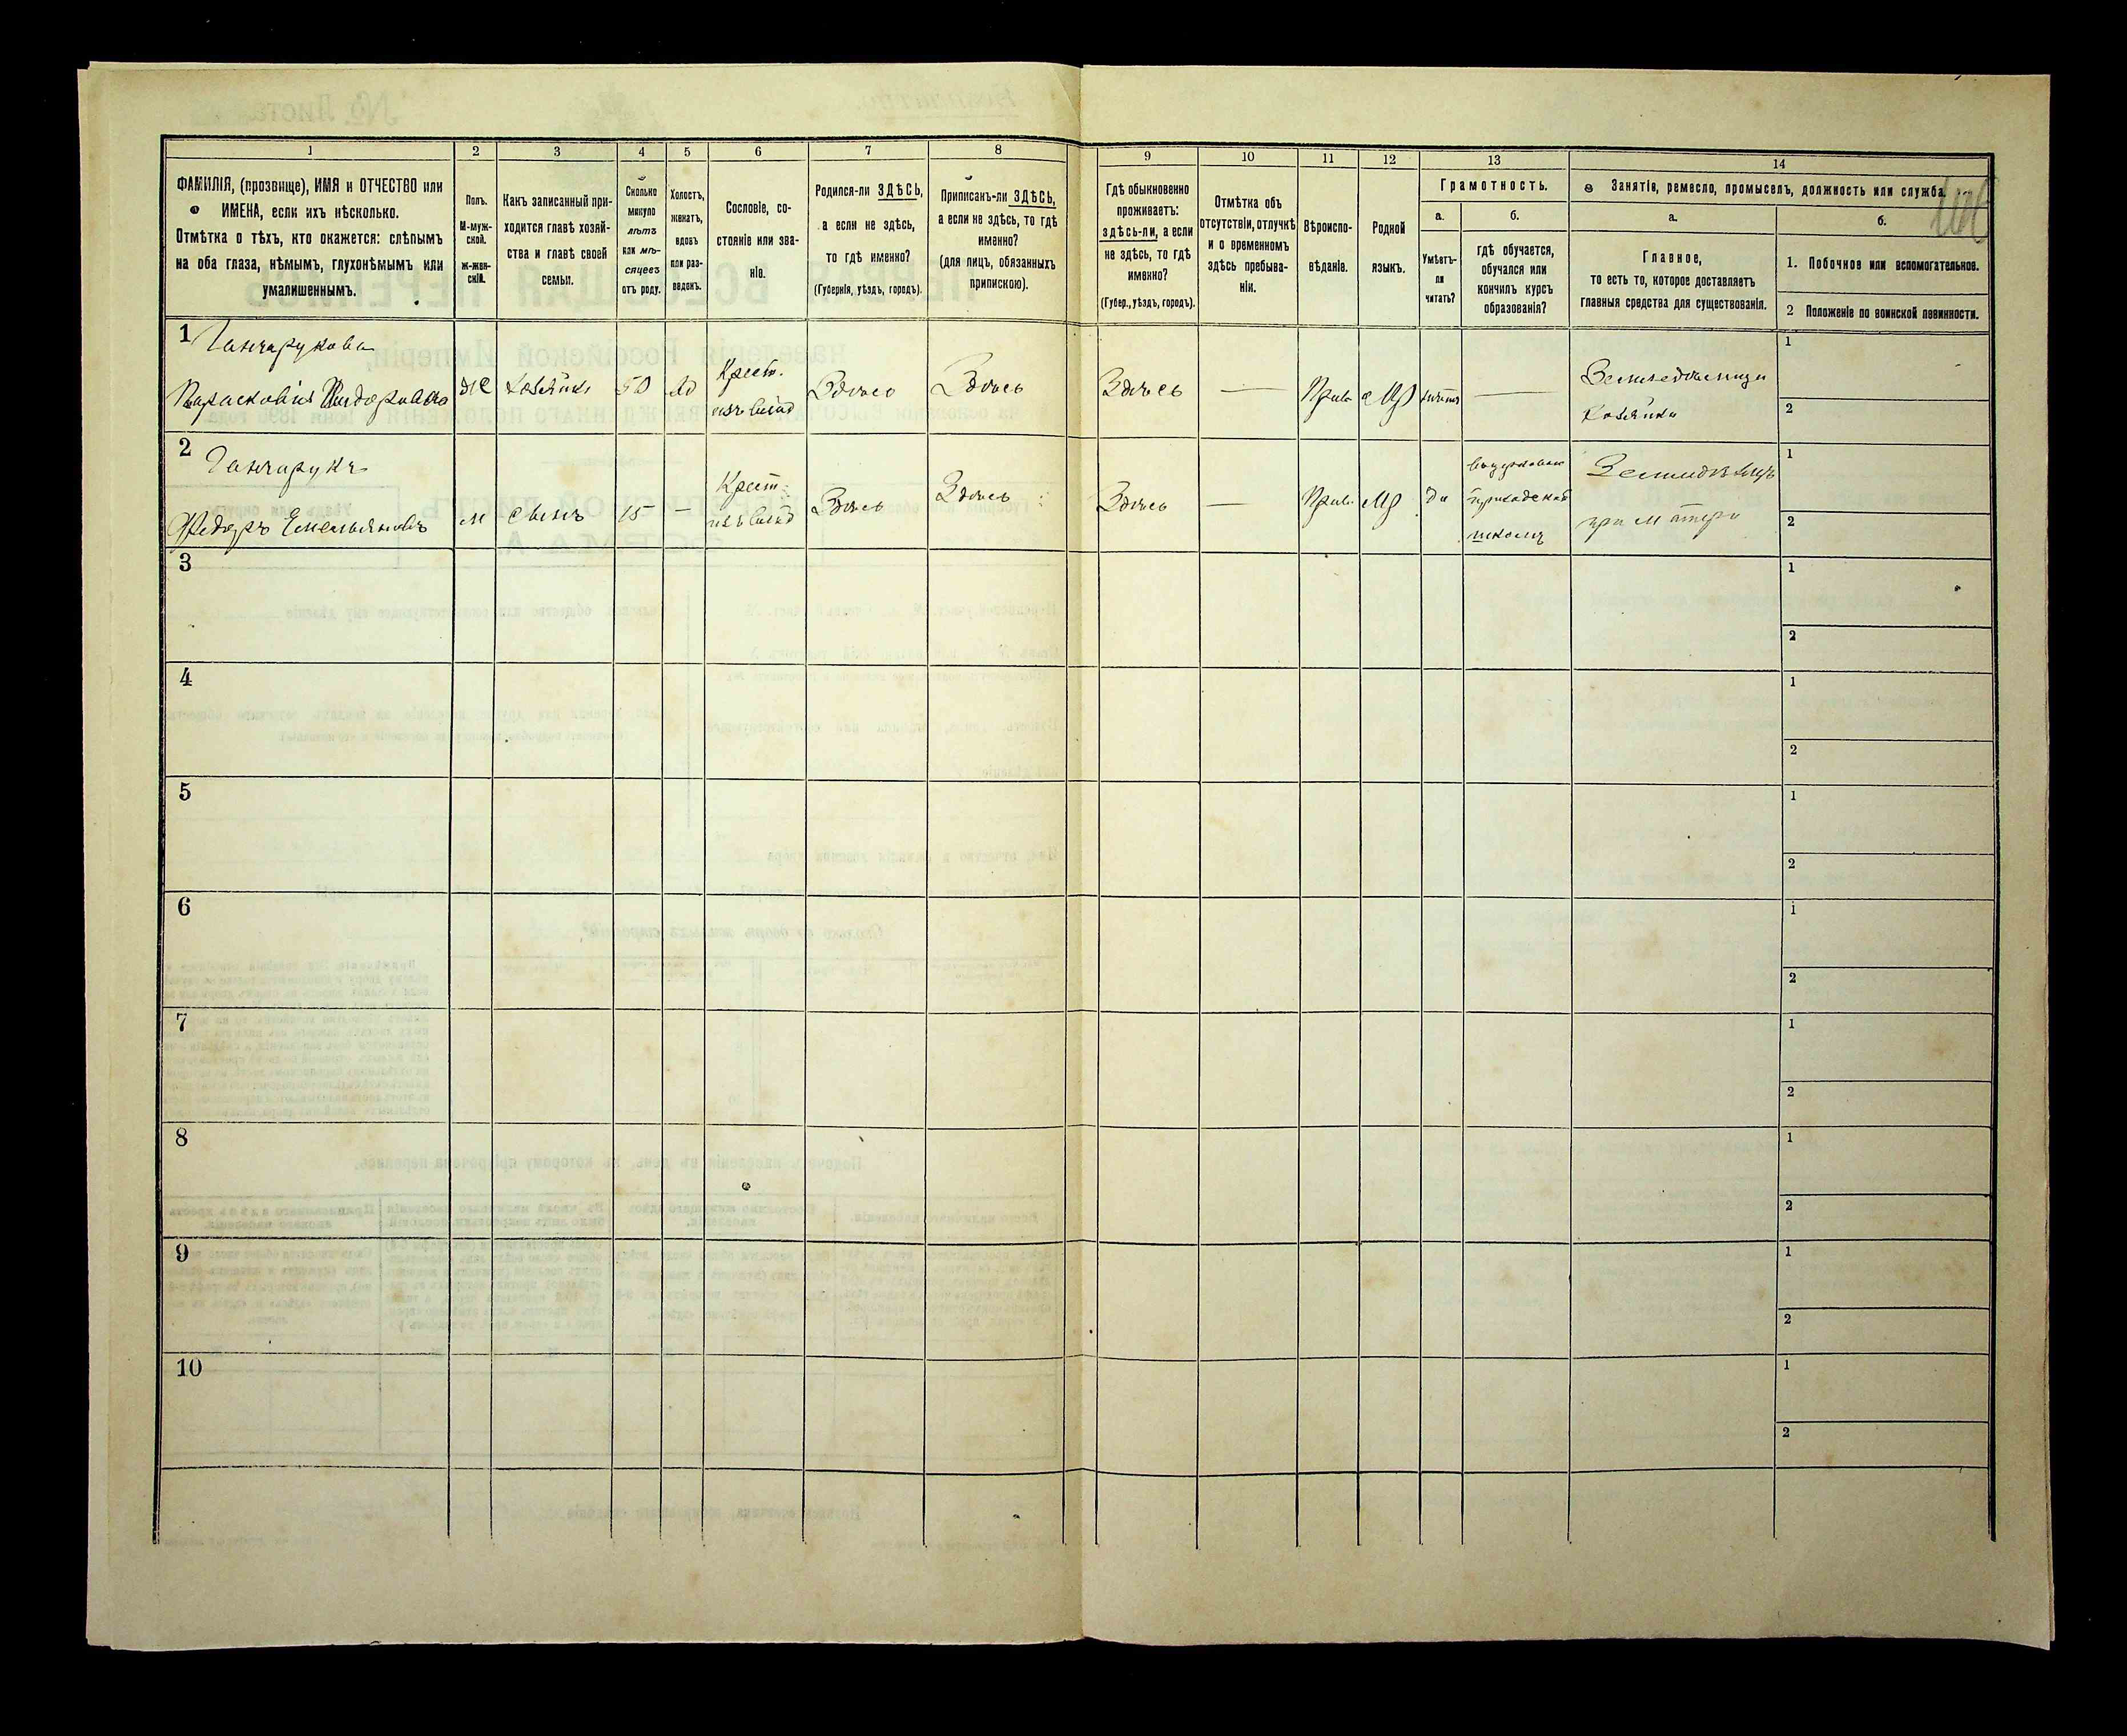 1
2
3
4
5
6
7
8
9
10
11
12
13
14
ФАМИЛІЯ, (прозвище), ИМЯ и ОТЧЕСТВО или
ИМЕНА, если ихъ нѣсколько.
Отмѣтка о тѣхъ, кто окажется: слѣпымъ
на оба глаза, нѣмымъ, глухонѣмымъ или
умалишеннымъ.
Полъ.
М-муж-
ской.
ж-жен-
скій.
Какъ записанный при-
ходится главѣ хозяй-
ства и главѣ своей
семьи.
Сколько
минуло
лѣтъ
или мѣ-
сяцевъ
отъ роду.
Холостъ,
женатъ,
вдовъ
или раз-
веденъ.
Сословіе, со-
стояніе или зва-
ніе.
Родился-ли ЗДѢСЬ,
а если не здѣсь,
то гдѣ именно?
(Губернія, уѣздъ, городъ).
Приписанъ-ли ЗДѢСЬ,
а если не здѣсь, то гдѣ
именно?
(для лицъ, обязанныхъ
припискою).
Гдѣ обыкновенно
проживаетъ:
здѣсь-ли, а если
не здѣсь, то гдѣ
именно?
(Губер., уѣздъ, городъ).
Отмѣтка объ
отсутствіи, отлучкѣ
и о временномъ
здѣсь пребыва-
ніи.
Вѣроиспо-
вѣданіе.
Родной
языкъ.
Грамотность.
а.
Умѣетъ-
ли
читать?
б.
гдѣ обучается,
обучался или
кончилъ курсъ
образованія?
Занятіе, ремесло, промыселъ, должность или служба.
а.
Главное,
то есть то, которое доставляетъ
главныя средства для существованія.
б.
1. Побочное или вспомогательное.
2 Положеніе по воинской повинности.
1
Ганчарукова
Парасковія
ж
Хозяйка
50
Крест.
Здѣсь
Здѣсь
Здѣсь
—
Прав.
Мр
—
Земледѣлица
Хозяйка
1
2
2
Ганчарукъ
Федоръ Емельяновъ
м
Сынъ
15
—
Крест.
Здѣсь
Здѣсь
Здѣсь
—
Прав.
Мр
Да
приходской
школѣ
Земледѣлецъ
при матери
1
2
3
1
2
4
1
2
5
1
2
6
1
2
7
1
2
8
1
2
9
1
2
10
1
2